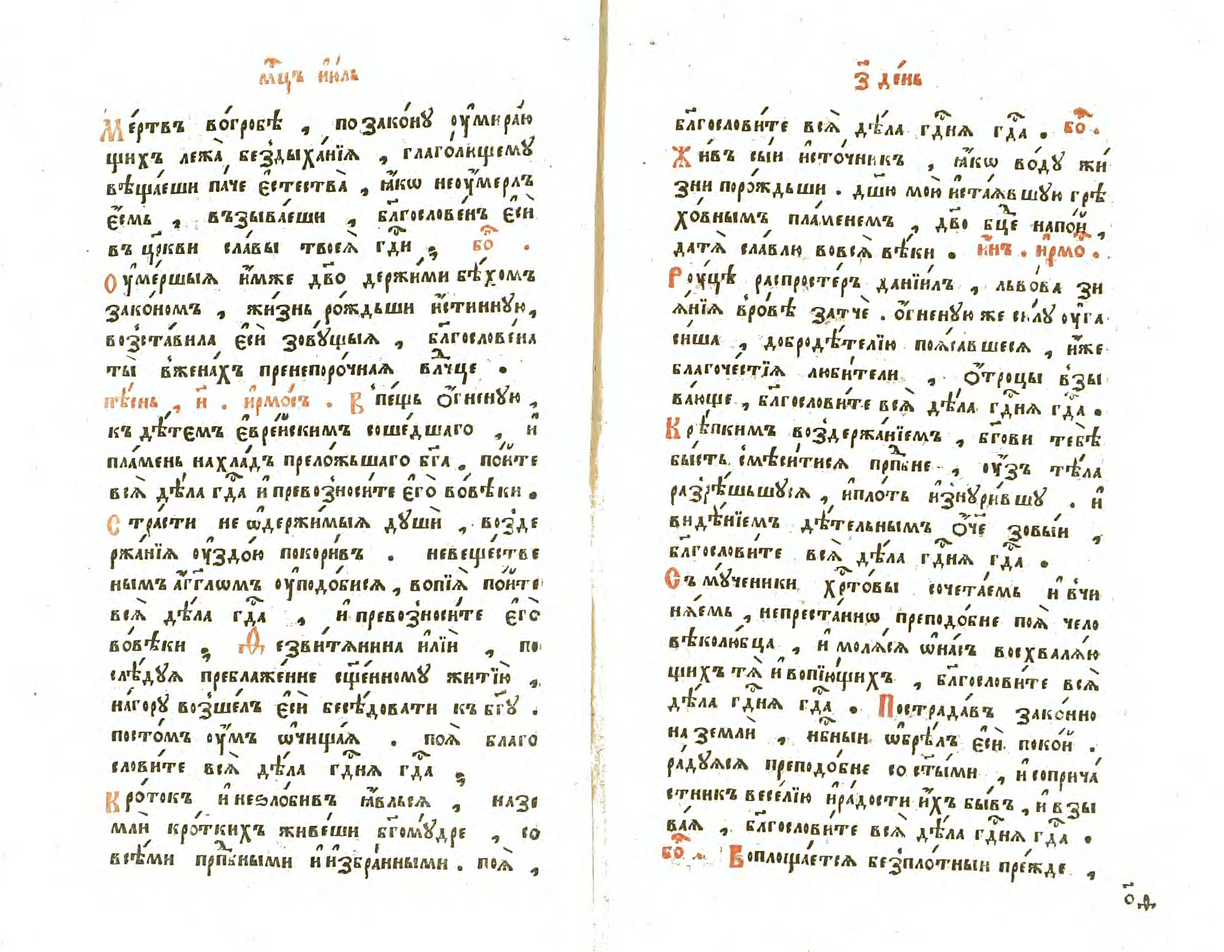 мⷭ҇цъ і҆ю́ль
Ме́ртвъ во́гробѣ , по зако́ну оу҆мира́ю
щихъ лежа̀ бездыха́нїѧ , глаго́лющему
вѣща́еши па́че є҆стества̀ , ꙗ҆́кѡ неоу҆мерлъ
є҆́смь , възыва́еши , бл҃гослове́нъ є҆сѝ
въ цр҃кви сла́вы твоеѧ̀ гд҇и , бо҇ .
Оу҆ме́ршыѧ и҆́мже дв҃о держи́ми бѣ́хомъ
зако́номъ , жи́знь ро́ждьши и҆́стинную,
возста́вила є҆сѝ зову́щыѧ , бл҃гослове́на
ты̀ вжена́хъ пренепоро́чнаѧ влⷣчце .
пѣ́снь , и҃ . і҆рмо́съ . В пе́щь ѻ҆́гненую ,
къ дѣ́темъ є҆вре́йскимъ соше́дшаго , и҆
пла́мень нахла́дъ прело́жьшаго бг҃а , по́ите
всѧ̀ дѣ́ла гдⷭ҇а и҆ превозноси́те є҆го̀ во́вѣки .
Стра́сти не ѡ҆держи́мыѧ душѝ , возде
ржа́нїѧ оу҆здо́ю покори́въ . невеще́стве
нымъ а҆́гг҃лѡмъ оу҆подо́бисѧ , вопїѧ̀ по́ите
всѧ̀ дѣ́ла гдⷭ҇а , и҆ превозноси́те є҆го̀
во́вѣки , Ѳезви́тѧнина и҆лїѝ , по
слѣ́дуѧ пребла́женне сщ҃е́нному житїю̀ ,
на́гору возше́лъ є҆сѝ бесѣ́довати къ бг҃у .
посто́мъ оу҆́мъ ѡ҆чища́ѧ . поѧ̀ благо
слови́те всѧ̀ дѣ́ла гдⷭ҇нѧ гдⷭ҇а ,
Кро́токъ и҆ неѕло́бивъ ꙗ҆́вльсѧ , на зе
млѝ кро́ткихъ живе́ши бг҃ому́дре , со
все́ми прпⷣбными и҆ и҆збра́нными . поѧ̀ ,
з҃ де́нь
бл҃гослови́те всѧ̀ дѣ́ла гдⷭ҇нѧ гдⷭ҇а . бо҇ .
Жи́въ сы́и и҆сто́чникъ , ꙗ҆́кѡ во́ду жи
зни поро́ждьши . дш҃ю мою̀ и҆ста́ѧвшую грѣ
хо́внымъ пла́менемъ , дв҃о бцⷣе напо́й ,
датѧ̀ сла́влю вовсѧ̀ вѣ́ки . и҆́нъ . і҆рмо҇ .
Роу́цѣ распросте́ръ данїи́лъ , льво́ва зи
ѧ҆́нїѧ вро́вѣ затчѐ . ѻ҆́гненую же си́лу оу҆га
си́ша , добродѣ́телїю поѧ́савшесѧ , и҆́же
благоче́стїѧ люби́тели , ѻ҆́троцы взы
ва́юще , бл҃гослови́те всѧ̀ дѣ́ла гдⷭ҇нѧ гдⷭ҇а .
Крѣ́пкимъ воздержа́нїемъ , бг҃ови тебѣ̀
бы́сть смѣси́тисѧ прпⷣбне , оу҆́зъ тѣ́ла
разрѣ́шьшусѧ , и҆пло́ть и҆знури́вшу . и҆
видѣ́нїемъ дѣ́тельнымъ ѻ҆́ч҃е зовы́и ,
бл҃гослови́те всѧ̀ дѣ́ла гдⷭ҇нѧ гдⷭ҇а .
Съ мч҃ченики хрⷭ҇то́вы сочета́емь и҆ вчи
нѧ́емь , непреста́ннѡ преподо́бне поѧ̀ чело
вѣколю́бца , и҆ молѧ́сѧ ѡ҆на́съ восхвалѧ́ю
щихъ тѧ̀ и҆ вопїю́щихъ , бл҃гослови́те всѧ̀
дѣ́ла гдⷭ҇нѧ гдⷭ҇а . Пострада́въ зако́нно
на землѝ , нбⷭ҇ныи ѡ҆брѣ́лъ є҆сѝ поко́й .
ра́дуѧсѧ преподо́бне со ст҃ы́ми , и҆ соприча́
стникъ весе́лїю и҆ра́дости и҆́хъ бы́въ , и҆ взы
ва́ѧ , бл҃гослови́те всѧ̀ дѣ́ла гдⷭ҇нѧ гдⷭ҇а .
бо҇ . Воплоща́етсѧ безпло́тныи пре́жде ,
ѻ҃д